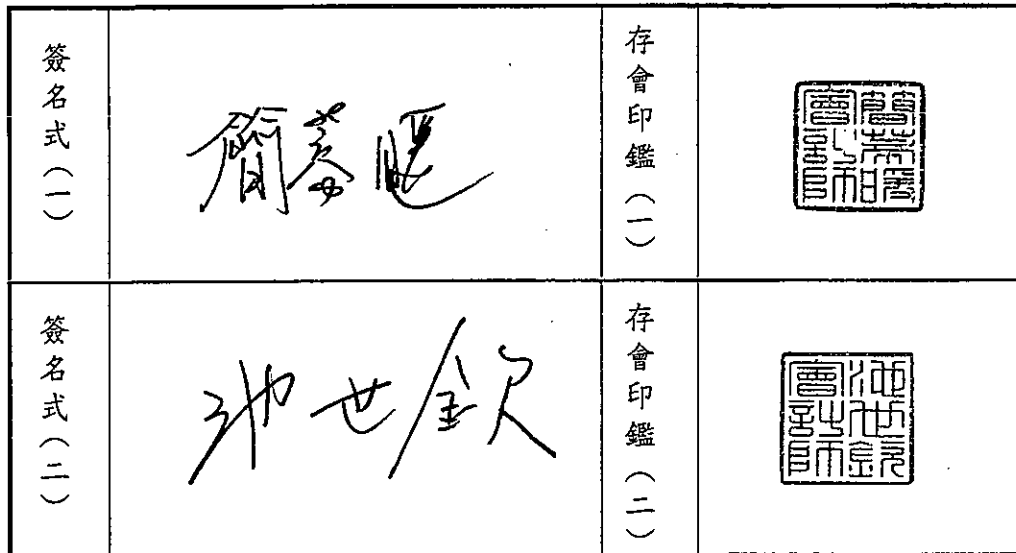 簽名式（一）
簡蒂暖
存會印鑑（一）
簡蒂暖會計師
簽名式（二）
池世欽
存會印鑑（二）
池世欽會計師